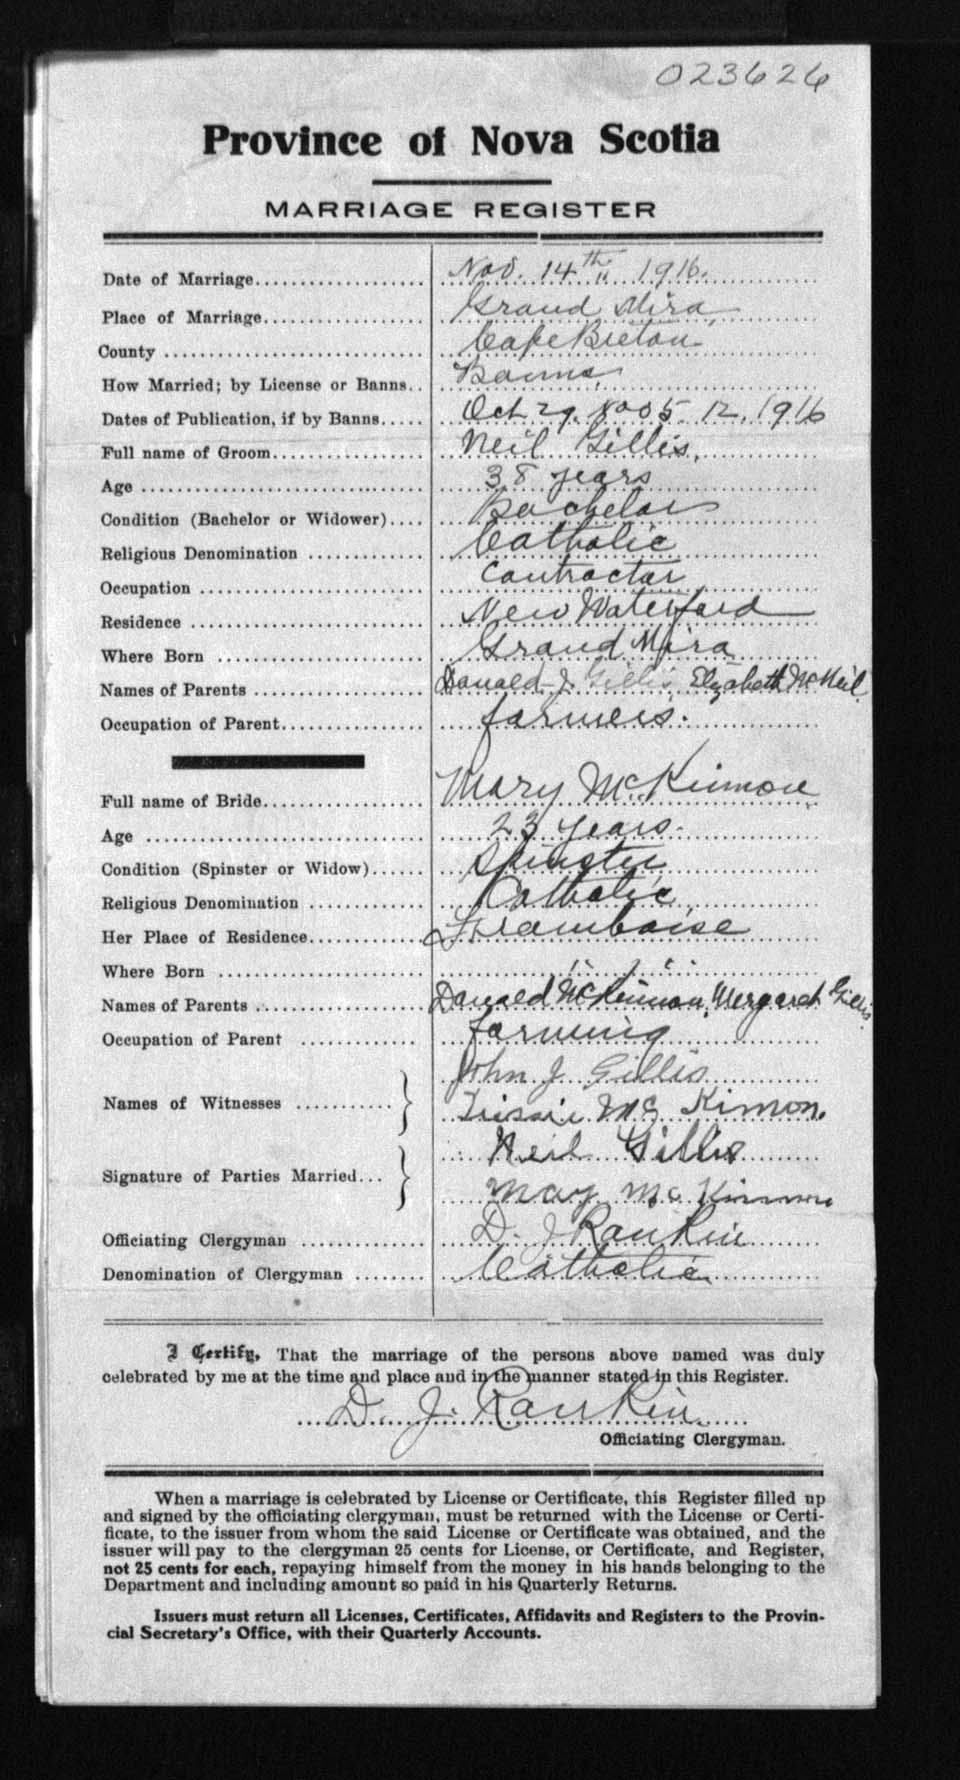 023626
Province of Nova Scotia
MARRIAGE REGISTER
Date of Marriage.................... Nov. 14th 1916.
Place of Marriage................... Grand Mira
County .............................. Cape Breton
How Married; by License or Banns.. Banns
Dates of Publication, if by Banns..... Oct 29, Nov 5. 12. 1916
Full name of Groom.................. Neil Gillis.
Age ................................. 38 years
Condition (Bachelor or Widower).... Bachelor
Religious Denomination ............. Catholic
Occupation .......................... Contractor
Residence ........................... New Waterford
Where Born ........................ Grand Mira
Names of Parents .................... Donald J. Gillis Elizabeth McNeil
Occupation of Parent................. farmers.
Full name of Bride................... Mary McKinnon
Age ................................. 23 years.
Condition (Spinster or Widow)...... Spinster
Religious Denomination ............. Catholic
Her Place of Residence............. Framboise
Where Born ........................ " "
Names of Parents .................... Donald McKinnon, Mergaret Gillis
Occupation of Parent ............... farming
John J. Gillis
Names of Witnesses ........... } Tissie Mc Kimon.
Neil Gillis
Signature of Parties Married... }
May Mc Kinnon
Officiating Clergyman ............... D. J. Rankin
Denomination of Clergyman ........ Catholic
I Certify, That the marriage of the persons above named was duly
celebrated by me at the time and place and in the manner stated in this Register.
D. J. Rankin
Officiating Clergyman.
When a marriage is celebrated by License or Certificate, this Register filled up
and signed by the officiating clergyman, must be returned with the License or Certi-
ficate, to the issuer from whom the said License or Certificate was obtained, and the
issuer will pay to the clergyman 25 cents for License, or Certificate, and Register,
not 25 cents for each, repaying himself from the money in his hands belonging to the
Department and including amount so paid in his Quarterly Returns.
Issuers must return all Licenses, Certificates, Affidavits and Registers to the Provin-
cial Secretary's Office, with their Quarterly Accounts.